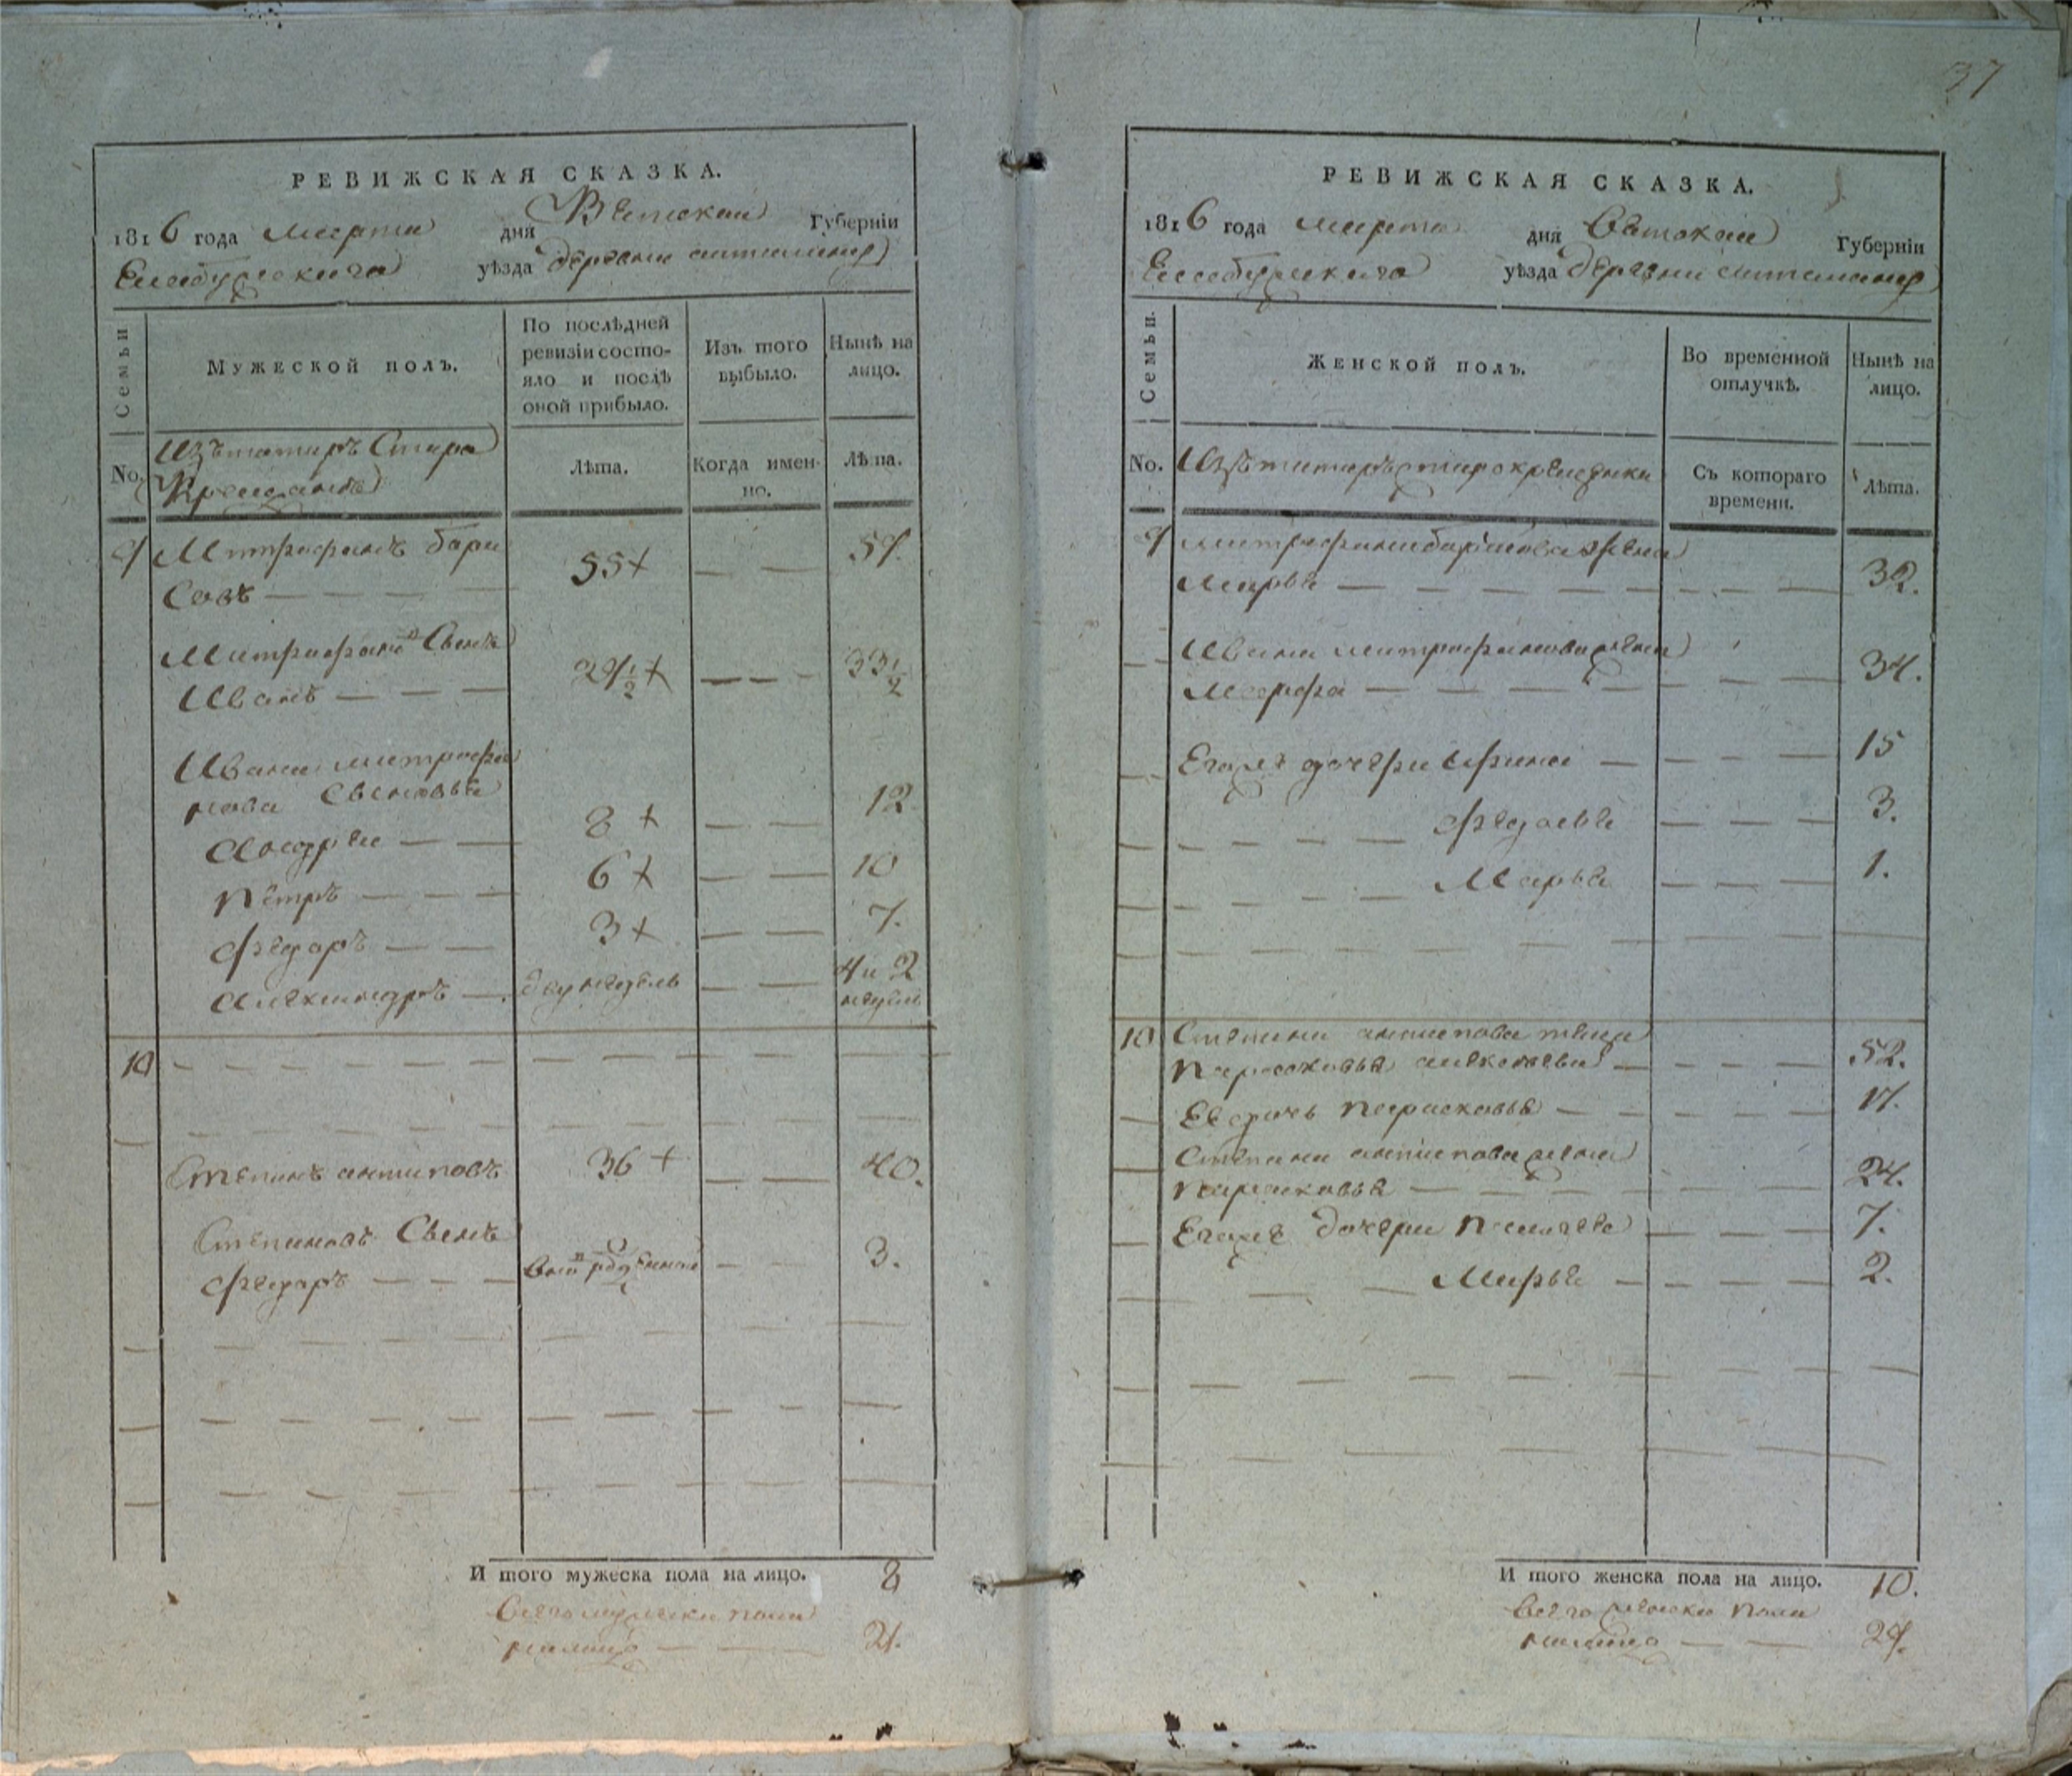 37
РЕВИЖСКАЯ СКАЗКА.
1816 года марта дня Вятской Губерніи
Елабужскаго уѣзда деревни
Семьи
Мужеской полъ.
По послѣдней ревизіи состо-
яло и послѣ
оной прибыло.
Изъ того
выбыло.
Нынѣ на
лицо.
No.
Изъ татаръ Старо
Крещенъ
Лѣта.
Когда имен-
но.
Лѣта.
9 Митрофанъ Бори
совъ 55+ 59.
Митрофановъ Сынъ
Иванъ 29½+ 33½
Ивана Митрофа
нова Сыновья
Андрей 8+ 12
Петръ 6+ 10
Федоръ 3+ 7.
Александръ двунедель 4 и 2
недель
10
Степанъ Антиповъ 36+ 40.
Степановъ Сынъ
Федоръ 3.
И того мужеска пола на лицо. 8
Всего мужска пола
налицо
РЕВИЖСКАЯ СКАЗКА.
1816 года марта дня Вятской Губерніи
Елабужскаго уѣзда деревни
Семьи.
Женской полъ.
Во временной
отлучкѣ.
Нынѣ на
лицо.
No.
Изъ татаръ старокрещенки
Съ котораго
времени.
Лѣта.
9 Митрофана Борисова жена
Марья 32.
Ивана Митрофанова жена
Марфа 34.
Егоже дочери Ирина 15
Федосья 3.
Марья 1.
10 Степана Антипова
Парасковья Алексеева 52.
Ее дочь Парасковья 17.
Степана Антипова жена
Парасковья 24.
Егоже дочери 7.
Марья 2.
И того женска пола на лицо. 10.
Всего женска пола
налицо 29.